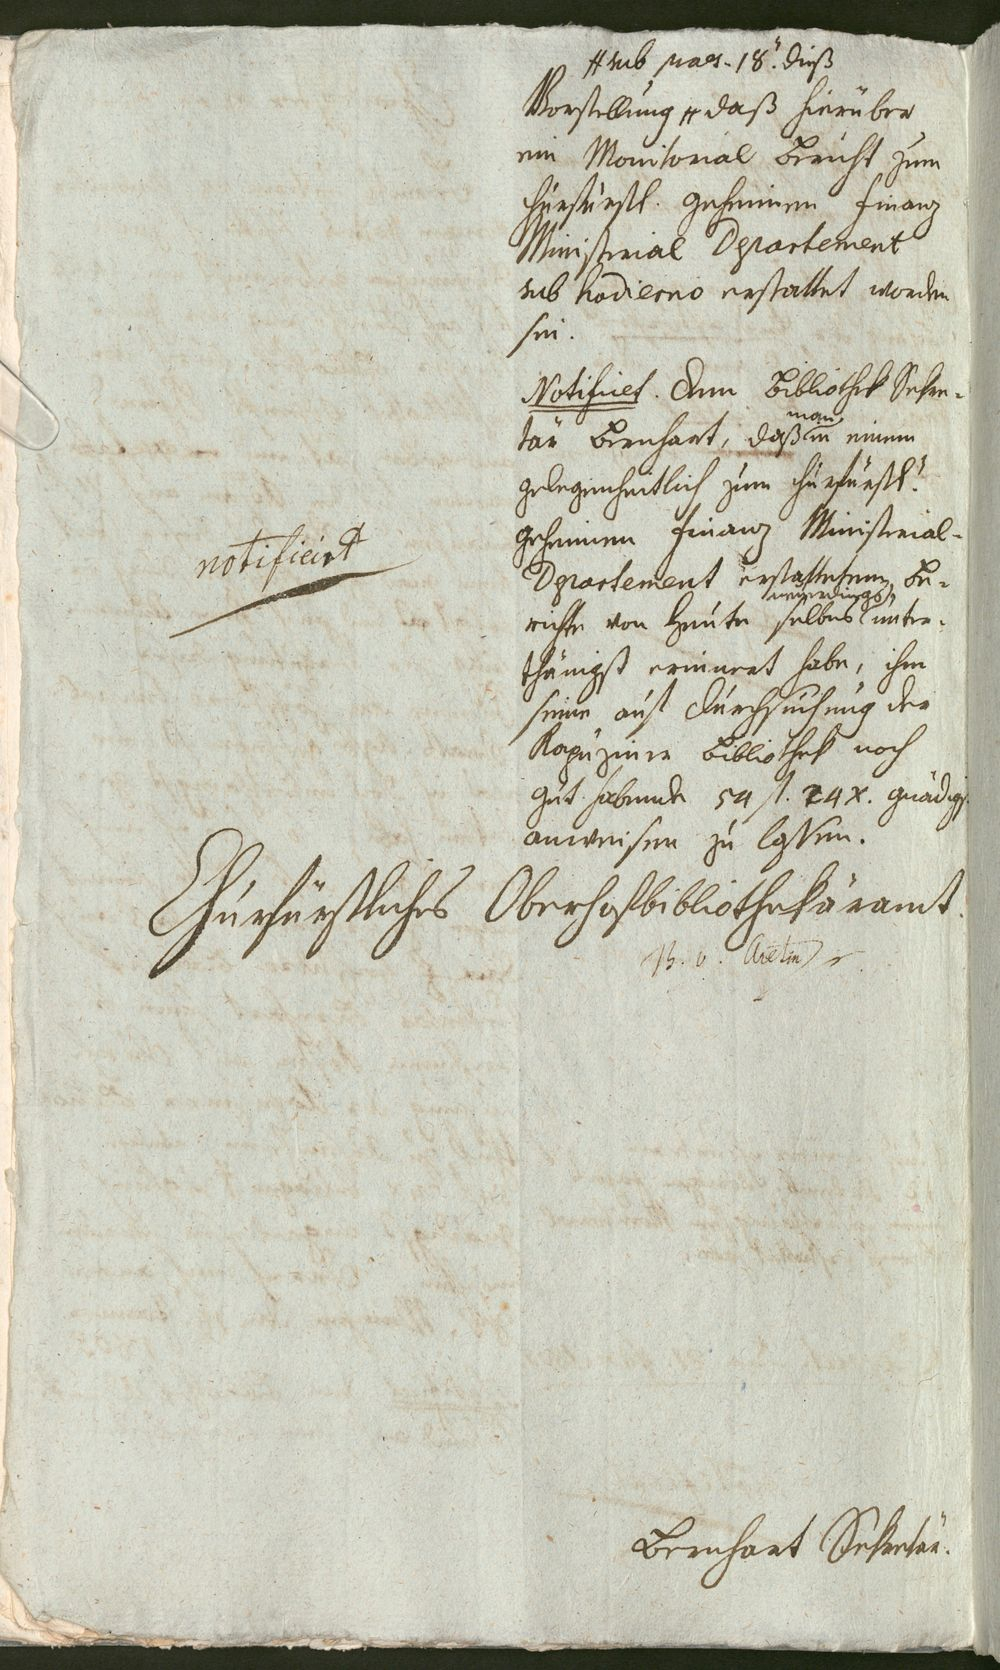 # sub praes. 18. dieß
Vorstellung # daß hierüber
ein Monitorial Bericht zum
churfürstl. geheimen Finanz
Ministerial Departement
sub hodierno erstattet worden
sei.
Notificet. dem Bibliothek Sekre-
tär Bernhart, daß man in einem
gelegenheitlich zum churfürstl.
geheimen Finanz Ministerial-
Departement erstattetem Be-
richte von Heute selbes neuerdings unter-
thänigst erinnert habe, ihm
seine aus Durchsuchung der
Kapuziner Bibliothek noch
gut habende 54 f. 24 x. gnädigst
anweisen zu lassen.
notificirt
Churfürstliches Oberhofbibliothekäramt.
B. v. Aretin
Bernhart Sekretär.